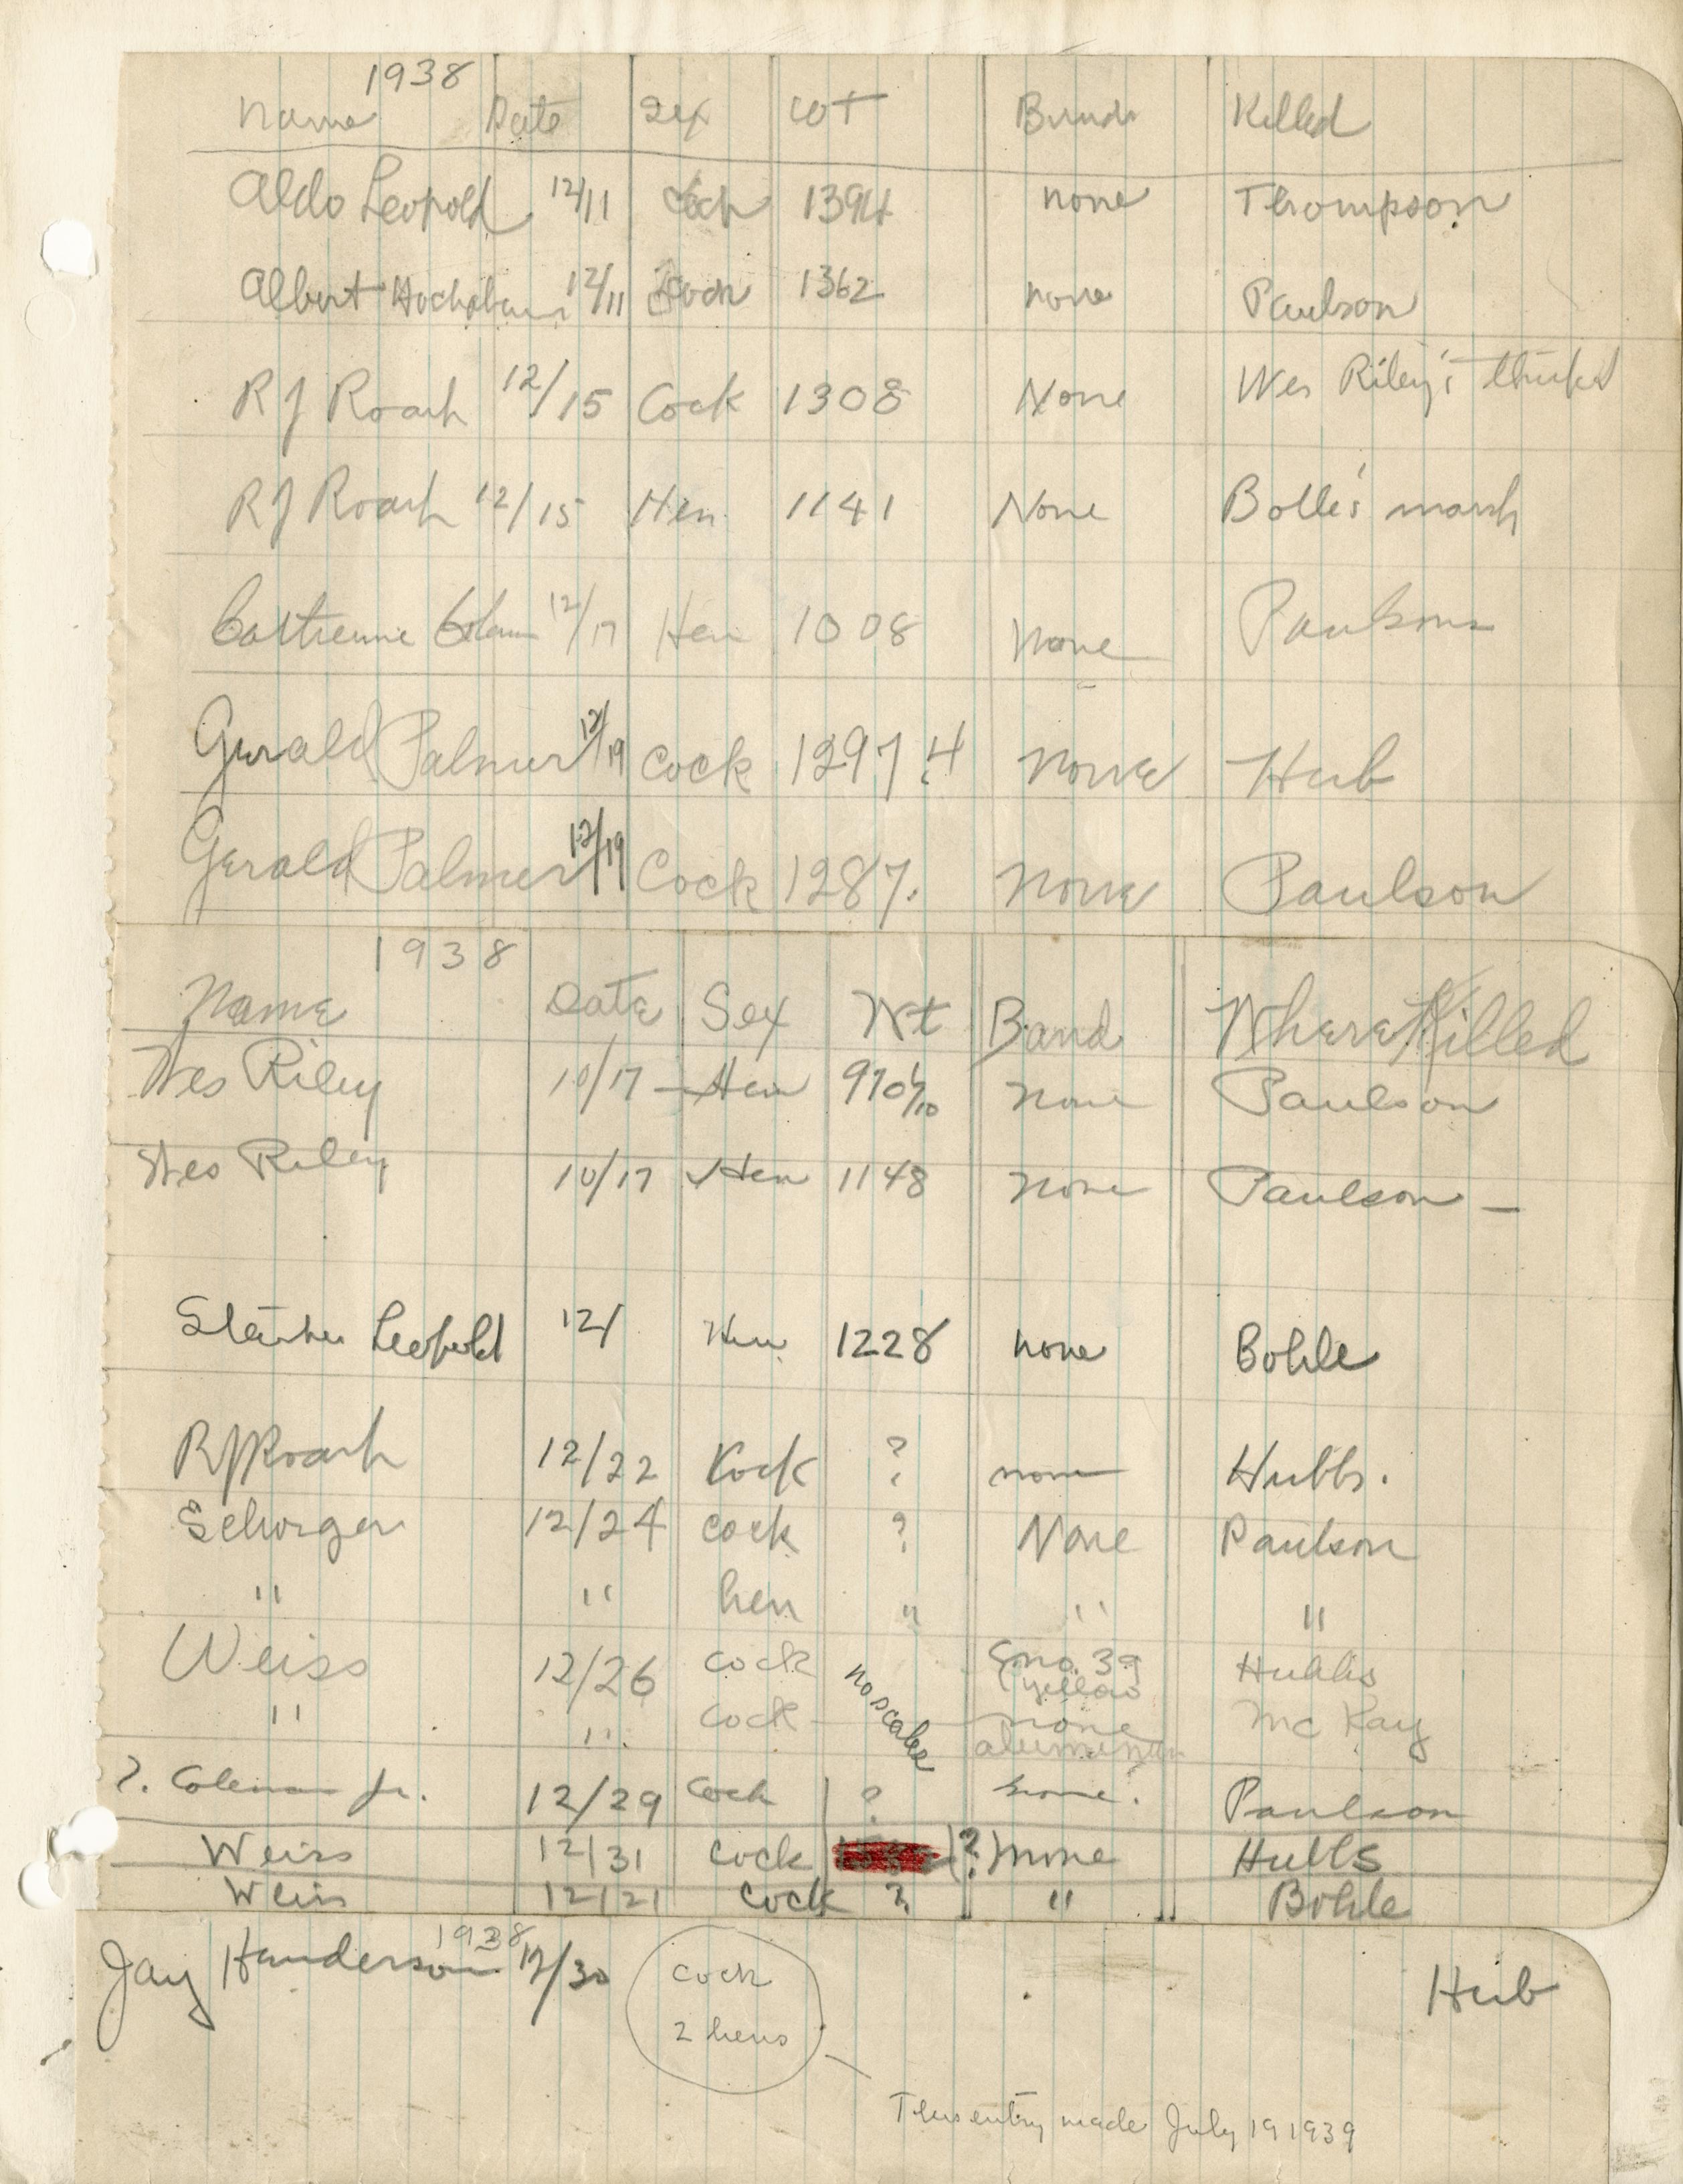 1938
Name Date Sex Wt Band Killed
Aldo Leopold 12/11 Cock 1394 none Thompson
Albert Hochbaum 12/11 Cock 1362 none Paulson
R J Roark 12/15 Cock 1308 None Wes Riley's
R J Roark 12/15 Hen 1141 None Bolle's marsh
12/17 Hen 1008 None Paulsons
Gerald Palmer 12/19 Cock 1297.4 None Hub
Gerald Palmer 12/19 Cock 1287. None Paulson
1938
Name Date Sex Wt Band Where Killed
Wes Riley 10/17 Hen None Paulson
Wes Riley 10/17 Hen 1148 None Paulson —
Starker Leopold 12/ Hen 1228 none Bohle
R J Roark 12/22 Cock ? none Hubbs.
Schorger 12/24 cock ? None Paulson
" " hen " " "
Weiss 12/26 cock no scales no. 39 Hubbs
yellow
" " cock none McKay
aluminum
?. Coleman Jr. 12/29 Cock ? Paulson
Weiss 12/31 cock ? None Hubbs
Weiss 12/21 cock ? " Bohle
1938
Jay Handerson 12/30 cock Hub
2 hens
This entry made July 19 1939